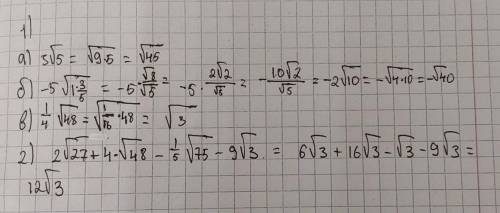 1)
а) 3√5 = √9·5 = √45
б) -5√1·3/5 = -5·√8/√5 = -5·2√2/√5 = -10√2/√5 = -2√10 = -√4·10 = -√40
в) 1/4 √48 = √1/16·48 = √3
г) 2√27 + 4·√48 - 1/5 √75 - 9√3 = 6√3 + 16√3 - √3 - 9√3 =
12√3